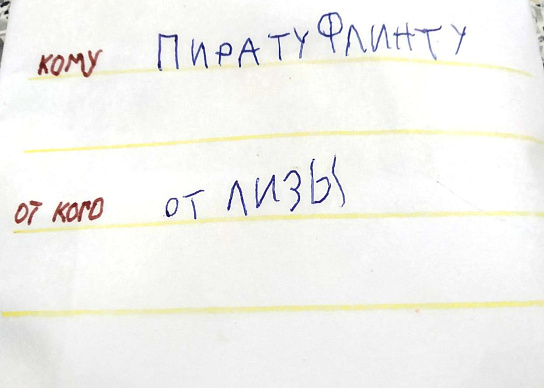 кому ПИРАТУ ФЛИНТУ
от кого от ЛИЗЫ